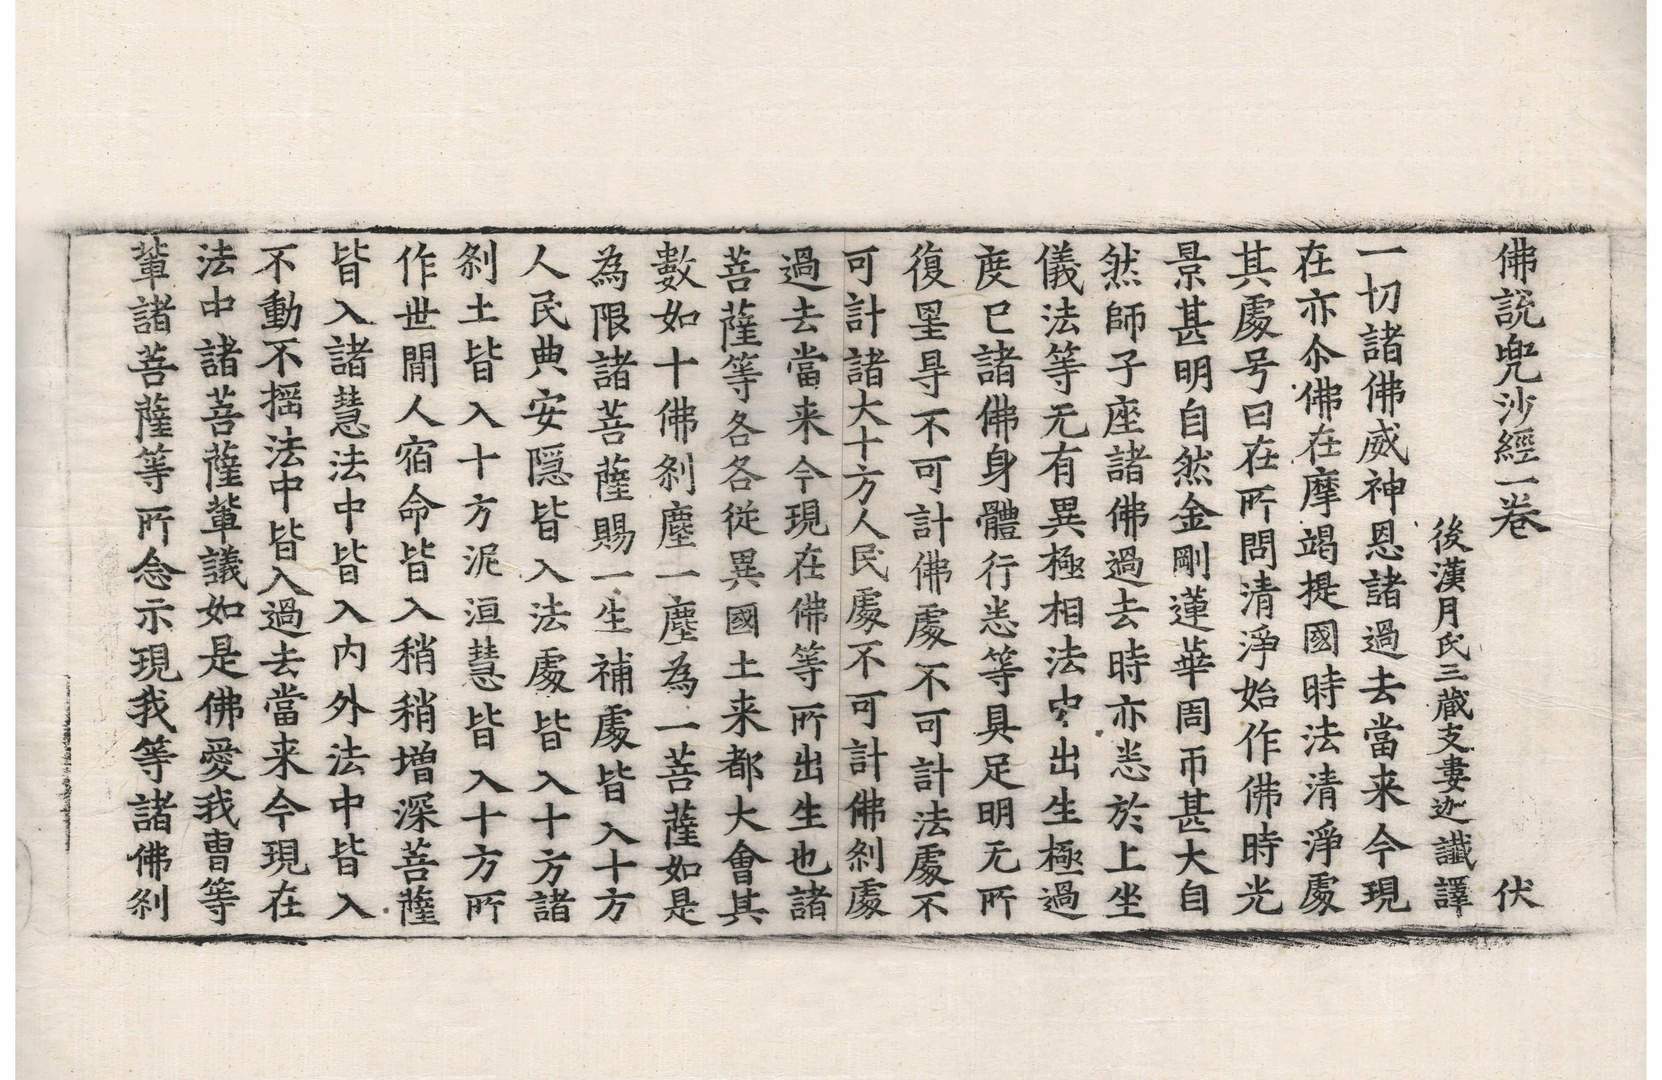 佛說兜沙經一卷 伏
後漢月氏三藏支婁迦讖譯
一切諸佛威神恩諸過去當来今現
在亦尒佛在摩竭提國時法清淨處
其處号曰在所問清淨始作佛時光
景甚明自然金剛蓮華周帀甚大自
然師子座諸佛過去時亦悉於上坐
儀法等无有異極相法中出生極過
度已諸佛身體行悉等具足明无所
復罣㝵不可計佛處不可計法處不
可計諸大十方人民處不可計佛剎處
過去當来今現在佛等所出生也諸
菩薩等各各從異國土来都大會其
數如十佛剎塵一塵為一菩薩如是
為限諸菩薩賜一生補處皆入十方
人民典安隱皆入法處皆入十方諸
剎土皆入十方泥洹慧皆入十方所
作世間人宿命皆入稍稍增深菩薩
皆入諸慧法中皆入內外法中皆入
不動不摇法中皆入過去當来今現在
法中諸菩薩輩議如是佛愛我曹等
輩諸菩薩等所念示現我等諸佛剎